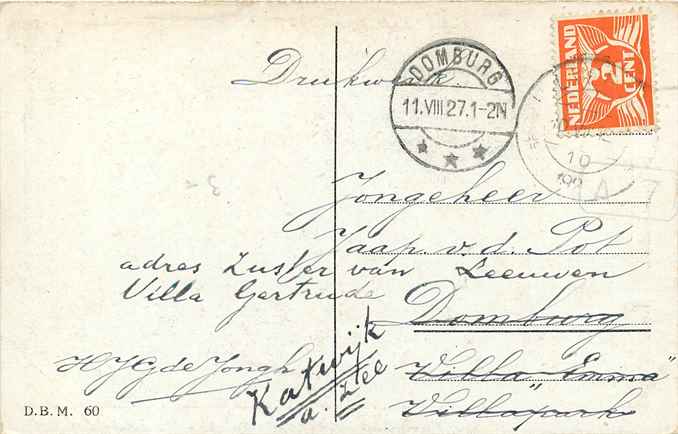 Drukwerk.
DOMBURG
11.VIII 27.1-2N
NEDERLAND
2
CENT
10
Jongeheer
Jaap. v. d. Pot
adres Zuster van Leeuwen
Villa Gertrude
Domburg
Katwijk
a. Zee
HJG de Jongh
Villa "Emma"
Villapark
D.B.M. 60